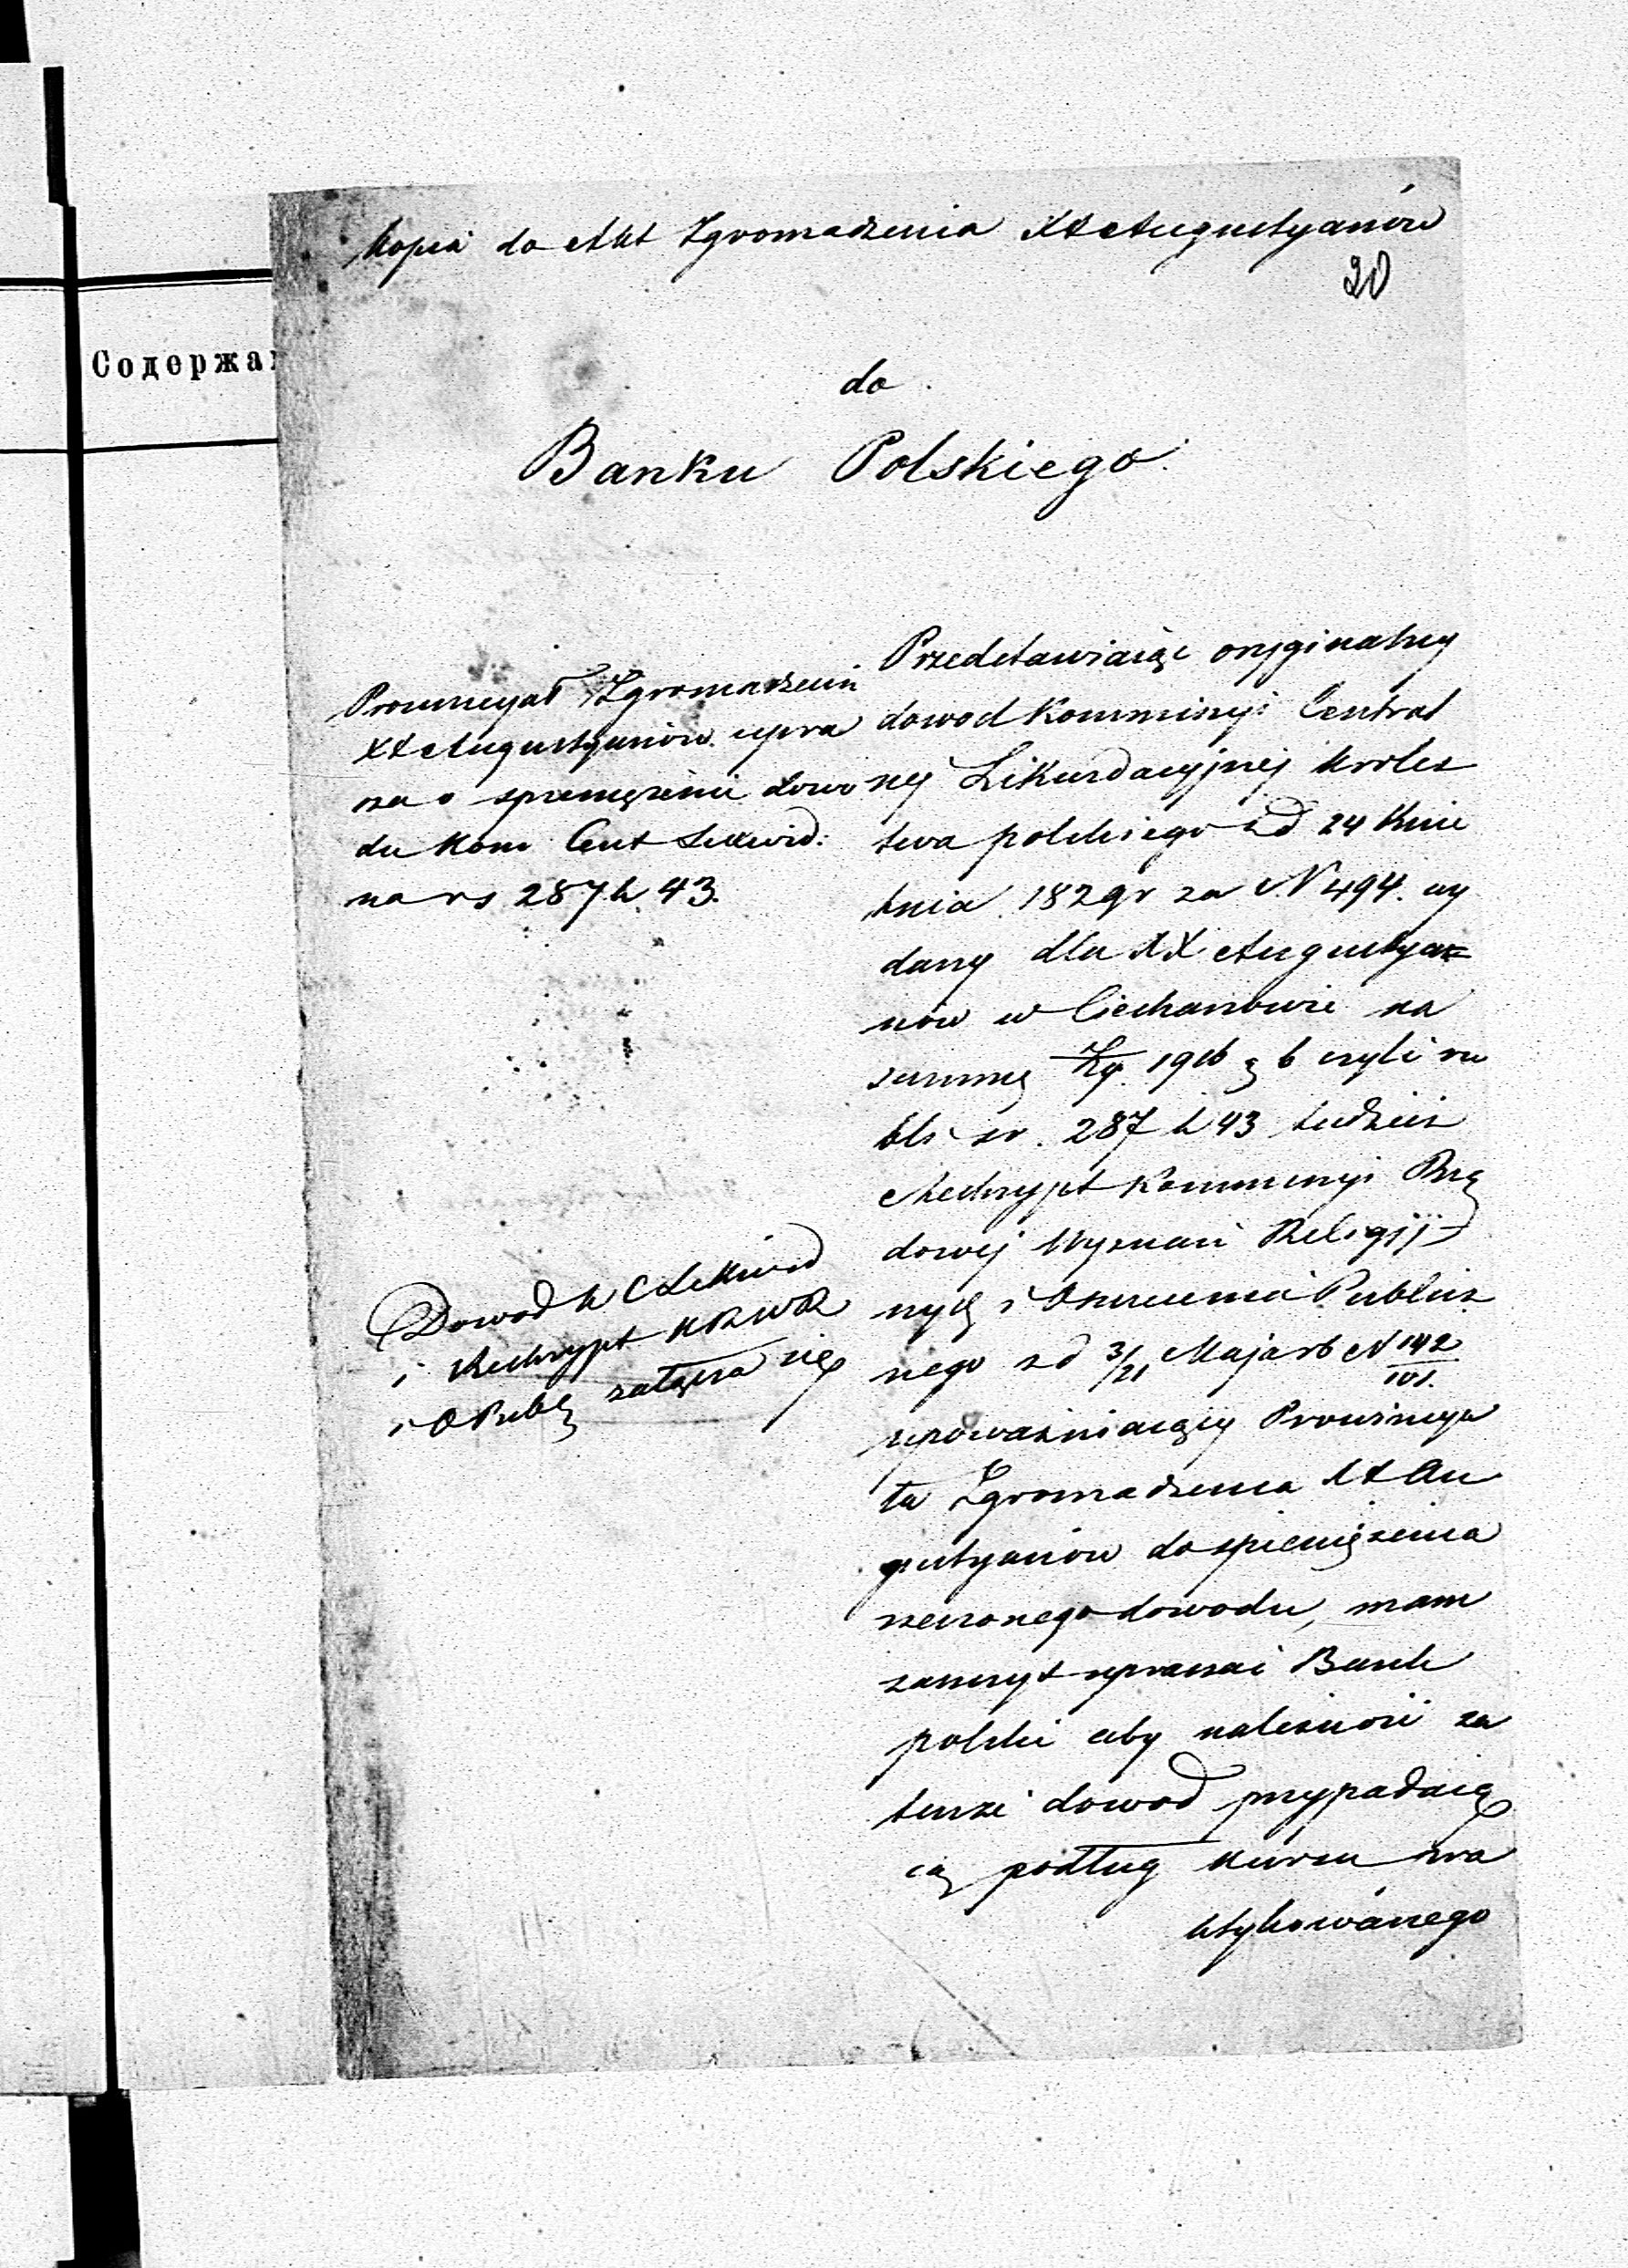 Kopia do Akt Zgromadzenia XX Augustyanów
20
Содержа
do
Banku Polskiego
Prowincyał Zgromadzenia
XX Augustyanów upra
sza o spieniężenie dowo
du Kom Cent Likwid:
na rs 287 k. 43.
Dowod K C Likwid
i Reskrypt KRWR
i O Publ załącza się
Przedstawiaiąc oryginalny
dowod Kommissyi Central
nej Likwidacyjnej Króles
twa polskiego z d 24 Kwie
tnia 1829 r za N 494. wy
dany dla XX Augustya
nów w Ciechanowie na
summę Zł. 1916 g 6 czyli ru
bli sr. 287 k 43 tudzież
Reskrypt Kommissyi Rzą
dowej Wyznań Religij
nych i Oświecenia Publicz
nego z d 3/21 Maja rb N 142
upoważniaiący Prowincya
ła Zgromadzenia XX Au
gustyanów do spieniężenia
rzeczonego dowodu, mam
zaszczyt upraszać Bank
polski aby należność za
tenże dowod przypadaią
cą podług kursu pra
ktykowanego